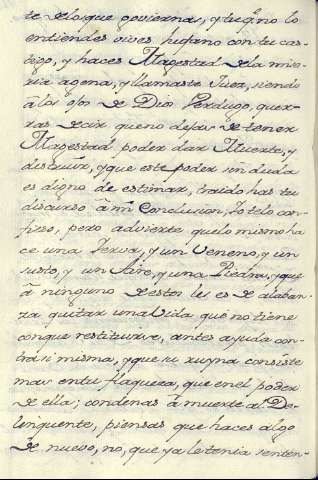 te de los que goviernas, y tu q̃ no lo
entiendes vives hufano con tu cas-
tigo, y haces Magestad de la mise-
ria agena, y llamaste Juez, siendo
â los ojos de Dios Verdugo, quer-
ras decir que no deja de tener
Magestad poder dar Muerte, y
destruir, y que este poder sin duda
es digno de estimar, traido has tu
discurso â mi Conclucion, Yo te lo con-
fieso, pero advierte que lo mismo ha-
ce una Yerva, y un Veneno, y un
susto, y un Aire, y una Piedra, y que
â ninguno de estos les es de alaban-
za quitar una Vida que no tiene
con que restituirse, antes ayuda con-
tra si misma, y que su ruyna consiste
mas en tu flaqueza, que en el poder
de ella; condenas â muerte al De-
linquente, piensas que haces algo
de nuevo, no, que ya le tenia senten-